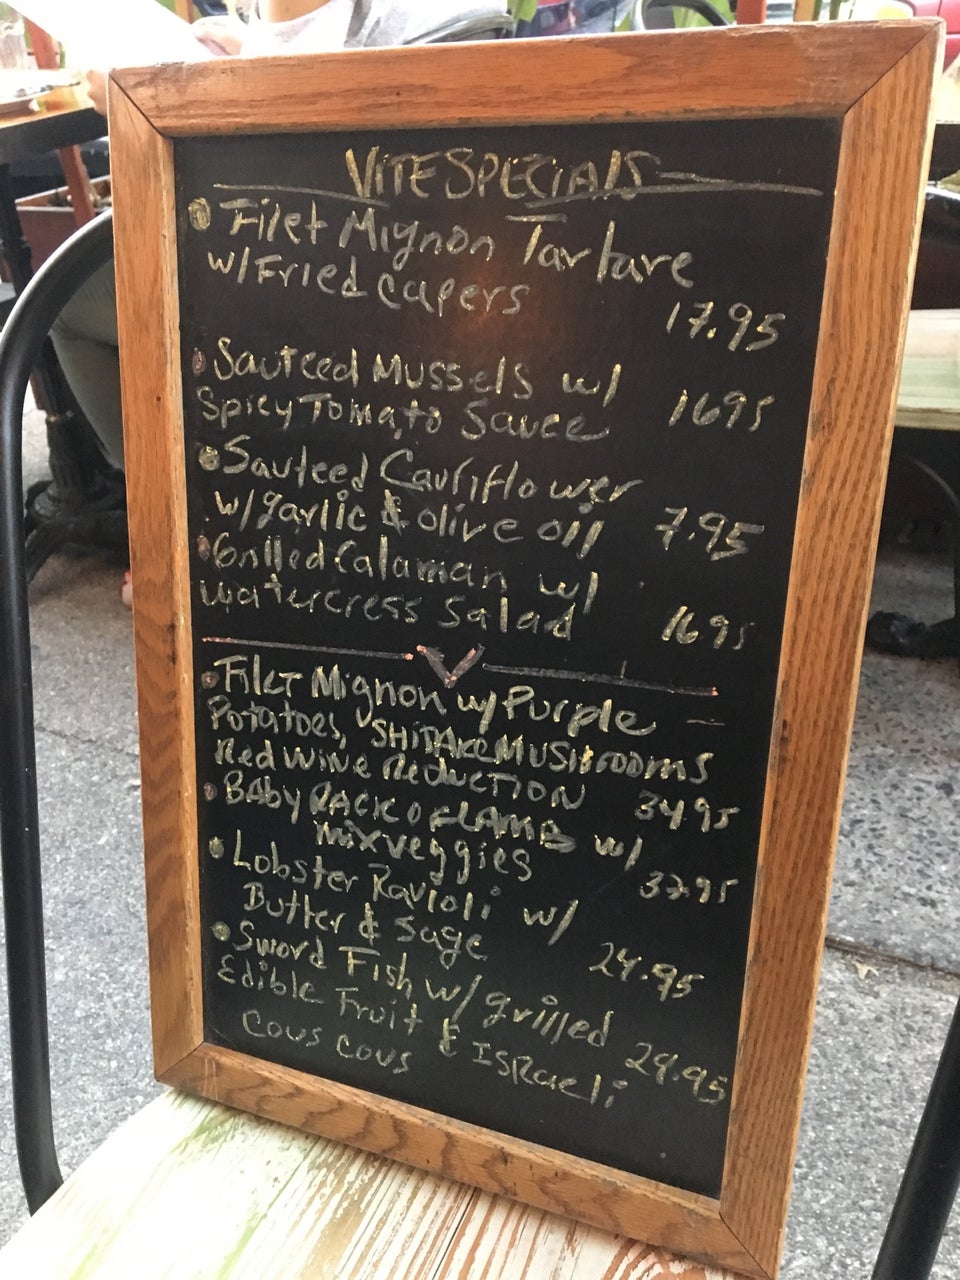 VITE SPECIAlS
Filet Mignon Tartare
w/Fried Capers
17.95
Sauteed Mussels w/
Spicy Tomato Sauce 1695
Sauteed Cauliflower
w/garlic & olive oil 7.95
Grilled Calamari w/
Watercress Salad 1695
FileT Mignon w/ Purple
Potatoes, SHiTAKe MUSHrooms
Red Wine ReducTION 34.95
BABy RACK OF LAMB w/
mix veggies 32.95
Lobster Ravioli w/
Butter & Sage 24.95
Sword Fish w/ grilled
Edible Fruit & ISRaeli 29.95
Cous cous